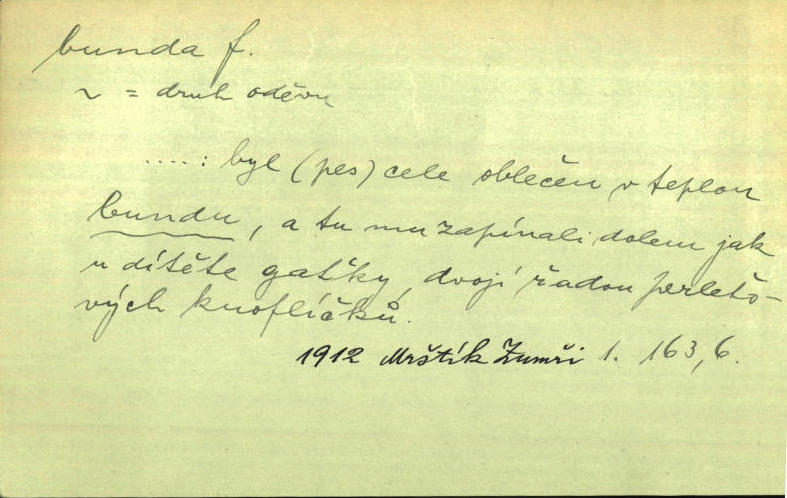 bunda f.
~ = druh oděvu
....: byl (pes) cele oblečen v teplou
bundu, a tu mu zapínali dolem jak
u dítěte gaťky, dvojí řadou perleťo-
vých knoflíčků.
1912 Mrštík Zumři 1. 163,6.